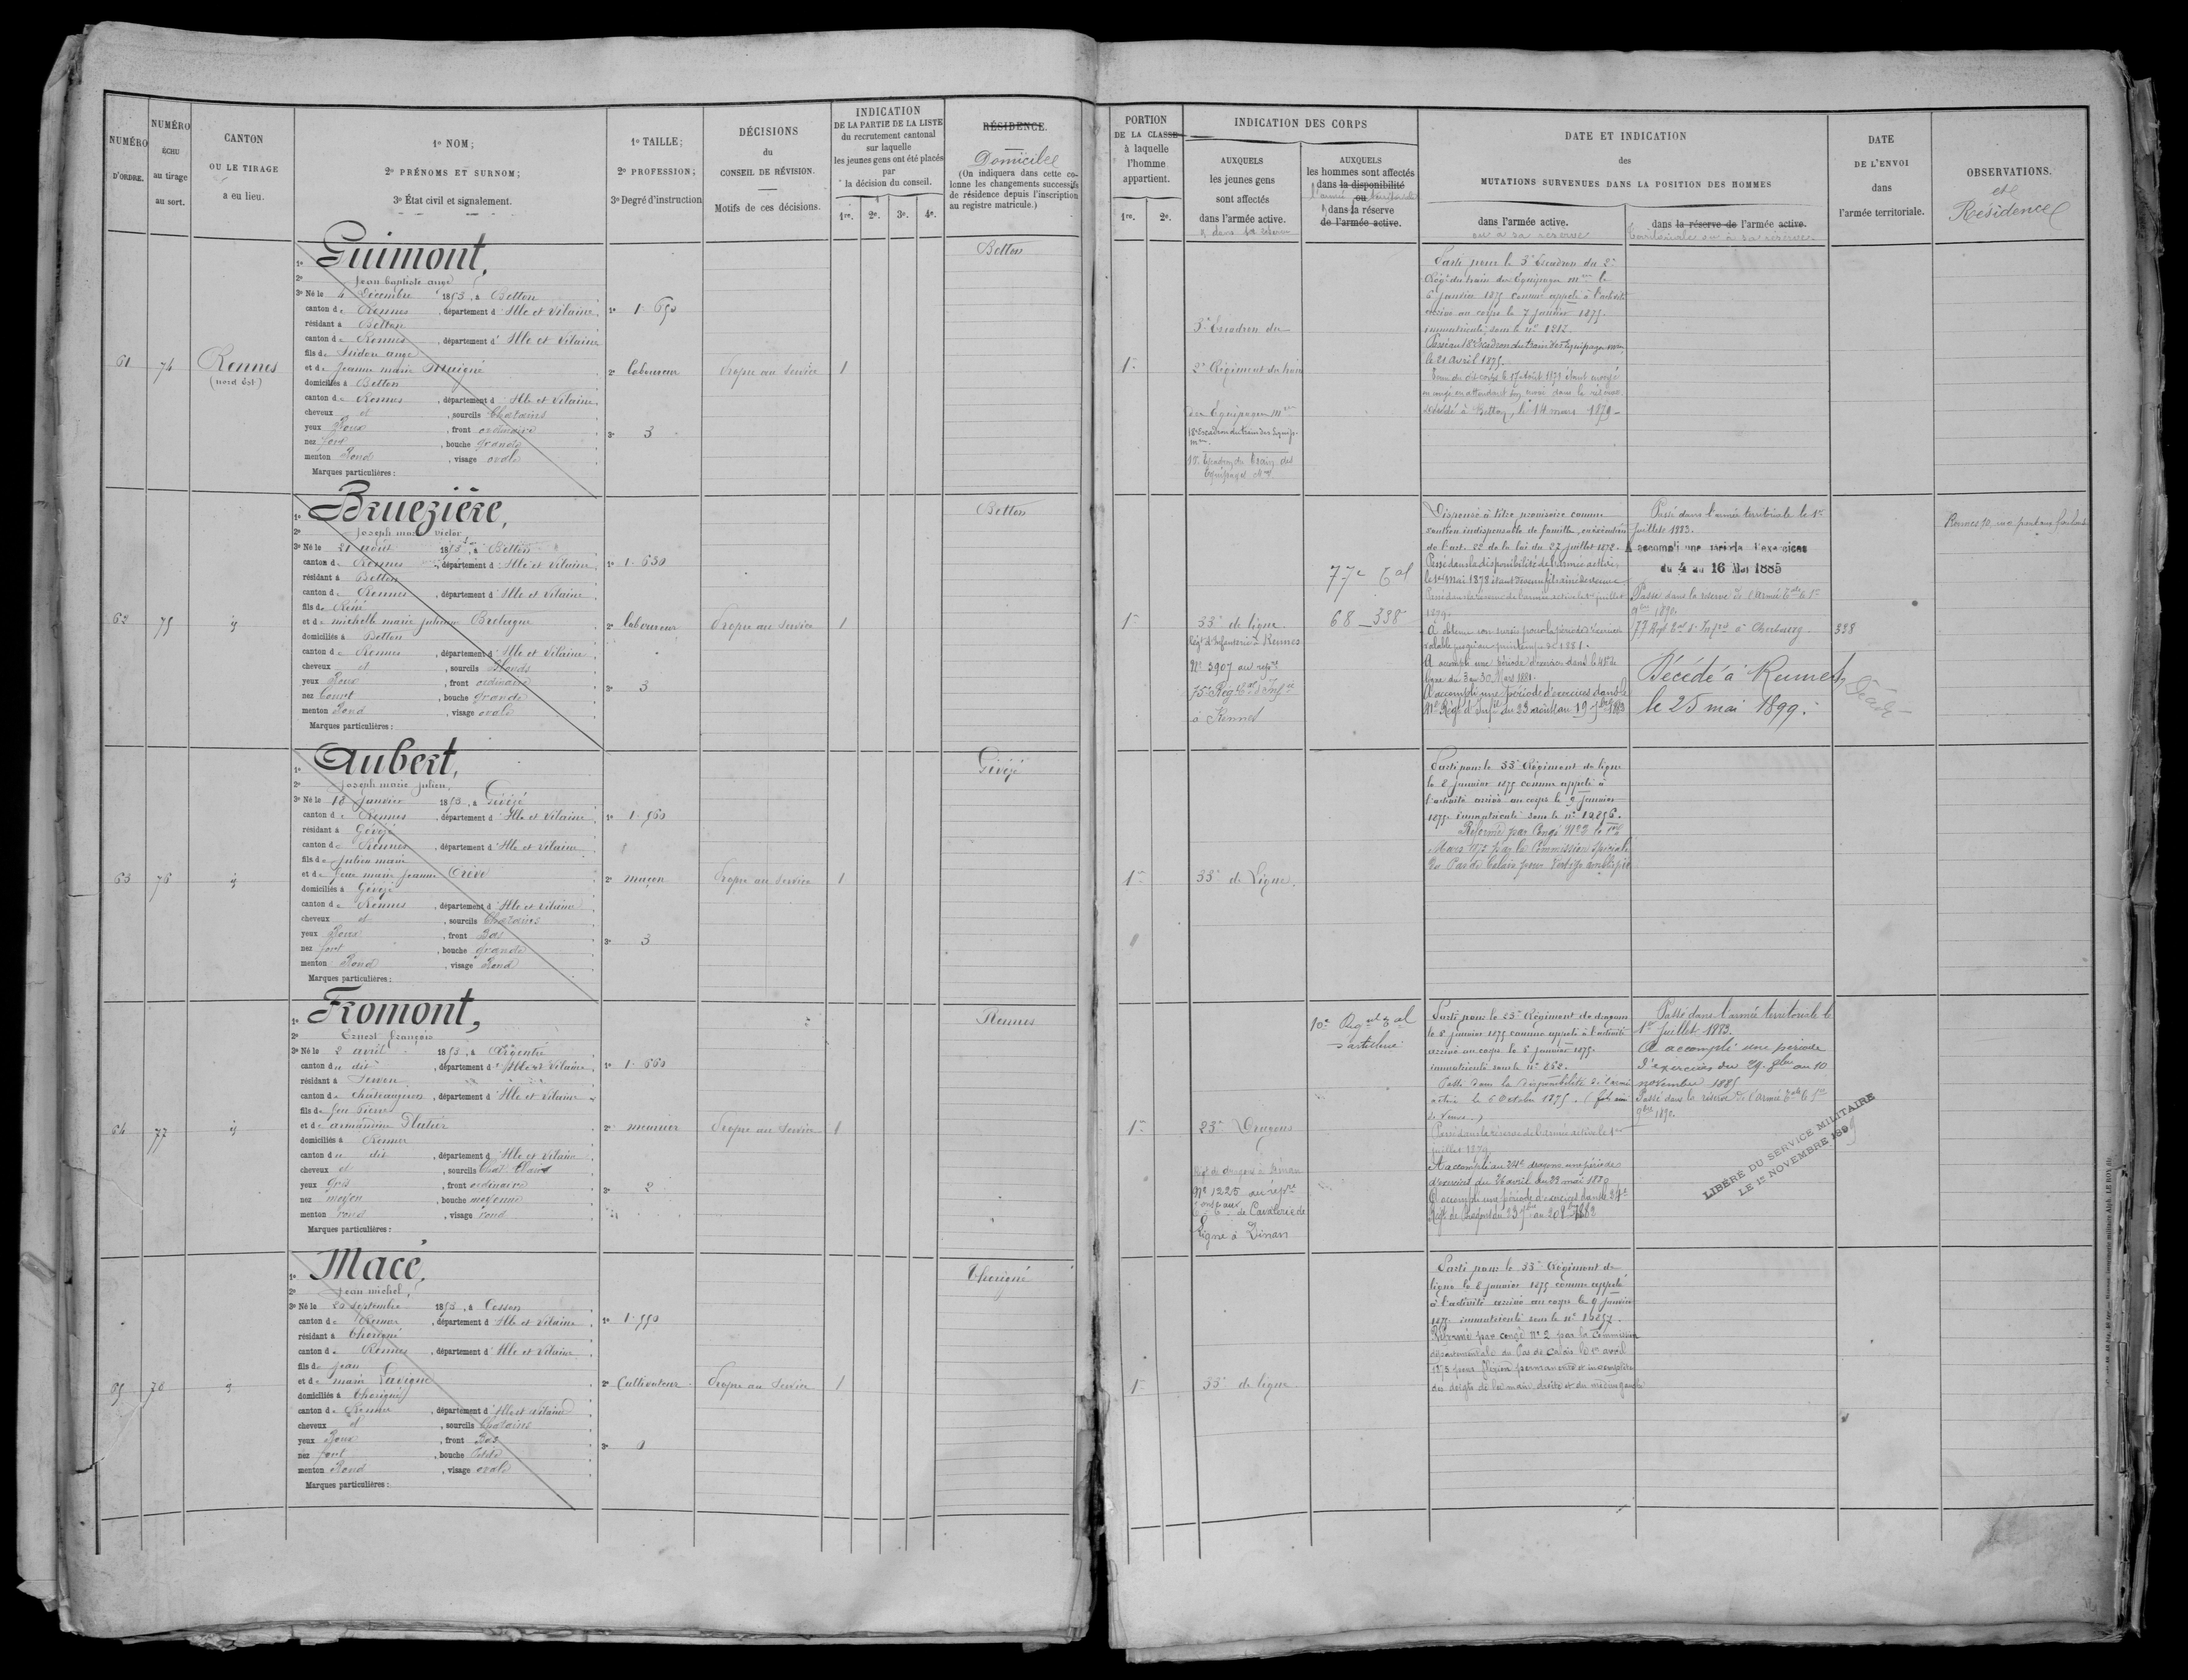 NUMÉRO
D'ORDRE.
NUMÉRO
ÉCHU
au tirage
au sort.
CANTON
OU LE TIRAGE
a eu lieu.
1º NOM;
2º PRÉNOMS ET SURNOM;
3º État civil et signalement.
1º TAILLE;
2º PROFESSION;
3º Degré d'instruction
DÉCISIONS
du
CONSEIL DE RÉVISION.
Motifs de ces décisions.
INDICATION
DE LA PARTIE DE LA LISTE
du recrutement cantonal
sur laquelle
les jeunes gens ont été placés
par
la décision du conseil.
1re. 2e. 3e. 4e.
RÉSIDENCE.
Domicile
(On indiquera dans cette co-
lonne les changements successifs
de résidence depuis l'inscription
au registre matricule.)
PORTION
DE LA CLASSE
à laquelle
l'homme
appartient.
1re. 2e.
INDICATION DES CORPS
AUXQUELS
les jeunes gens
sont affectés
dans l'armée active.
& dans sa réserve
AUXQUELS
les hommes sont affectés
dans la disponibilité
ou
l'armée territoriale
& dans la réserve
de l'armée active.
DATE ET INDICATION
des
MUTATIONS SURVENUES DANS LA POSITION DES HOMMES
dans l'armée active.
ou à sa réserve
dans la réserve de l'armée active.
territoriale ou à sa réserve.
DATE
DE L'ENVOI
dans
l'armée territoriale.
OBSERVATIONS.
et
Résidence
61
74
Rennes
(nord Est)
1º Guimont,
2º Jean baptiste ange
3º Né le 4 Décembre 1853, à Betton
canton de Rennes, département d'Ille et Vilaine
résidant à Betton
canton de Rennes, département d'Ille et Vilaine
fils de Isidore ange
et de Jeanne marie Maigné
domiciliés à Betton
canton de Rennes, département d'Ille et Vilaine
cheveux et, sourcils Chatains
yeux Roux, front ordinaire
nez fort, bouche grande
menton Rond, visage ovale
Marques particulières:
1º 1.650
2º laboureur
3º 3
Propre au service
1
Betton
1re
3e Escadron du
2e Régiment du train
des Equipages mres
18e Escadron du train des Equip.
mres.
Parti pour le 3e Escadron du 2e
Régt du train des Equipages mres le
6 janvier 1875 comme appelé à l'activité
arrivé au corps le 7 janvier 1875.
immatriculé sous le nº 1217.
Passé au 18e Escadron du train des Equipages mres,
le 21 Avril 1875.
Décédé à Betton, le 14 mars 1879
62
75
id
1º Bruezière,
2º Joseph marie victor
3º Né le 21 août 1853, à Betton
canton de Rennes, département d'Ille et Vilaine
résidant à Betton
canton de Rennes, département d'Ille et Vilaine
fils de René
et de michelle marie julienne Bretagne
domiciliés à Betton
canton de Rennes, département d'Ille et Vilaine
cheveux et, sourcils Blonds
yeux Roux, front ordinaire
nez Court, bouche grande
menton Rond, visage ovale
Marques particulières:
1º 1.630
2º laboureur
3º 3
Propre au service
1
Betton
1re
33e de ligne
Régt d'Infanterie à Rennes
Nº 3907 au repre
75e Régt Eal d'Infie
à Rennes
77e Eal
68_338
Dispensé à titre provisoire comme
soutien indispensable de famille, en exécution
de l'art. 22 de la loi du 27 juillet 1872.
Passé dans la disponibilité de l'armée active,
le 1er Mai 1878 étant devenu fils aîné de veuve.
Passé dans la réserve de l'armée active le 1er juillet
1879.
A obtenu son sursis pour la période d'exercice
valable jusqu'au printemps de 1881.
A accompli une période d'exercices dans le 41e de
ligne du 3 au 30 Mars 1881.
A accompli une période d'exercices dans le
41e Régt d'Infie du 23 août au 19 7bre 1883
Passé dans l'armée territoriale le 1er
Juillet 1883.
A accompli une période d'exercices
du 4 au 16 Mai 1885
Passé dans la réserve de l'Armée Eale le 1er
9bre 1892.
77 Régt Eal d'Infie à Cherbourg
Décédé à Rennes,
le 25 mai 1899.
338
63
76
id
1º Aubert,
2º Joseph marie julien,
3º Né le 18 janvier 1853, à Gévézé
canton de Rennes, département d'Ille et Vilaine
résidant à Gévézé
canton de Rennes, département d'Ille et Vilaine
fils de julien marie
et de feue marie jeanne Crève
domiciliés à Gévézé
canton de Rennes, département d'Ille et Vilaine
cheveux et, sourcils Chatains
yeux Roux, front Bas
nez fort, bouche grande
menton Rond, visage Rond
Marques particulières:
1º 1.560
2º maçon
3º 3
Propre au service
1
Gévézé
1re
33e de Ligne.
Parti pour le 33e Régiment de ligne
le 8 janvier 1875 comme appelé à
l'activité arrivé au corps le 9 janvier
1875. immatriculé sous le nº 12856.
Réformé par Congé Nº 2 le 1er
Mars 1875 par la Commission Spéciale
du Pas de Calais pour
64
77
id
1º Fromont,
2º Ernest françois
3º Né le 2 avril 1853, à Argentré
canton du dit, département d'Ille et Vilaine
résidant à Servon
canton de Chateaugiron, département d'Ille et Vilaine
fils de feu Pierre
et de armandine Platier
domiciliés à Rennes
canton du dit, département d'Ille et Vilaine
cheveux et, sourcils Chat. Clairs
yeux Gris, front ordinaire
nez moyen, bouche moyenne
menton rond, visage rond
Marques particulières:
1º 1.660
2º meunier
3º 2
Propre au service
1
Rennes
1re
23e Dragons
Régt de dragons à Dinan
Nº 1225 au repre
de Cavalerie de
Ligne à Dinan
10e Régt Eal
d'artillerie
Parti pour le 23e Régiment de dragons
le 8 janvier 1875 comme appelé à l'activité
arrivé au corps le 8 janvier 1875.
immatriculé sous le nº 262.
Passé dans la disponibilité de l'armée
active le 6 octobre 1875. (fils aîné
de Veuve.)
Passé dans la réserve de l'armée active le 1er
juillet 1879
A accompli au 24e dragons une période
d'exercices du 26 avril au 23 mai 1880
A accompli une période d'exercices dans le 24e
Passé dans l'armée territoriale le
1er Juillet 1883.
A accompli une période
d'exercices du 29 8bre au 10
novembre 1885
Passé dans la réserve de l'Armée Eale le 1er
9bre 1892.
LIBÉRÉ DU SERVICE MILITAIRE
LE 1er NOVEMBRE 1899
65
78
id
1º Macé,
2º Jean michel,
3º Né le 20 septembre 1853, à Cesson
canton de Rennes, département d'Ille et Vilaine
résidant à Thorigné
canton de Rennes, département d'Ille et Vilaine
fils de jean
et de marie Lavigne
domiciliés à Thorigné
canton de Rennes, département d'Ille et Vilaine
cheveux et, sourcils Chatains
yeux Roux, front Bas
nez fort, bouche Petite
menton Rond, visage ovale
Marques particulières:
1º 1.550
2º Cultivateur
3º 0
Propre au service
1
Thorigné
1re
33e de ligne
Parti pour le 33e Régiment de
ligne le 8 janvier 1875 comme appelé
à l'activité arrivé au corps le 9 janvier
1875. immatriculé sous le nº 12857.
Réformé par congé Nº 2 par la Commission
départementale du Pas de Calais le 1er avril
1875 pour flexion permanente et incomplète
des doigts de la main droite et du médius gauche